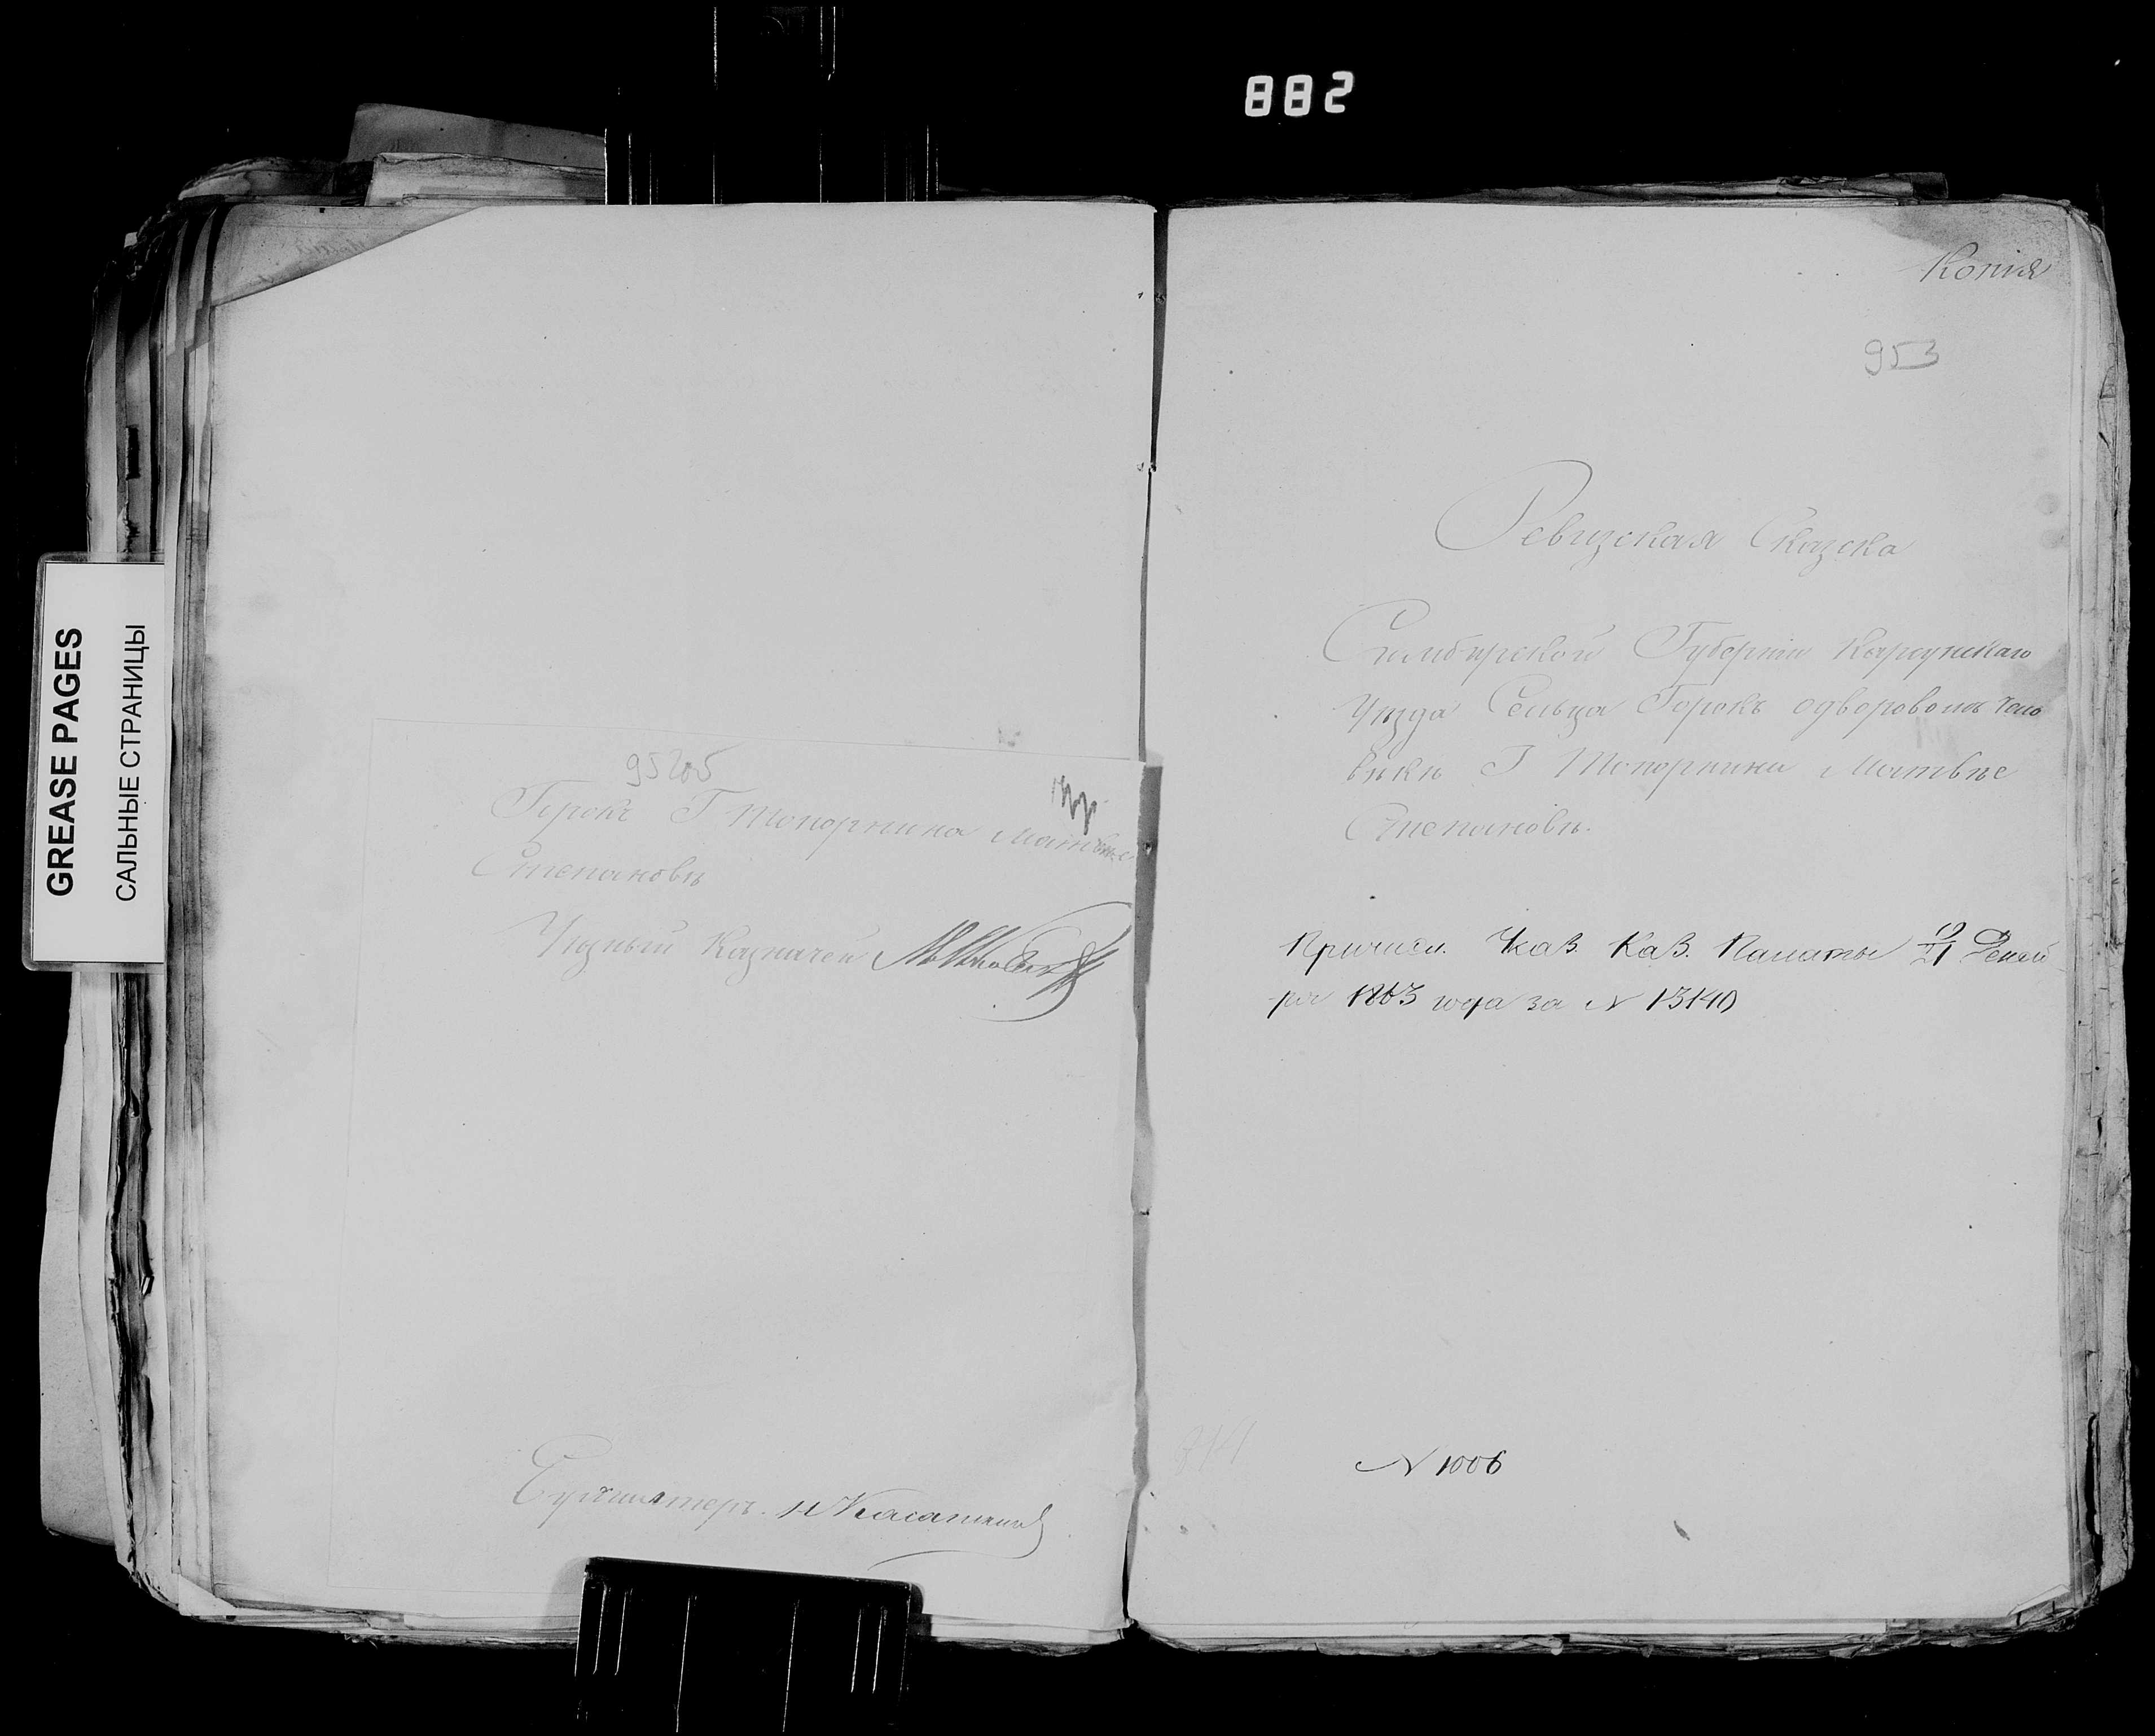 882
GREASE PAGES
САЛЬНЫЕ СТРАНИЦЫ
952об
Горокъ Г Топорнина Матвѣе
Степановѣ
Уѣзный Казначей
Бухгалтеръ. Н Касаткинъ
Копія
953
Ревизская Сказска
Симбирской Губерніи Карсунскаго
Уѣзда Сельца Горокъ одворовомъ чело
вѣкѣ Г Топорнина Матвѣе
Степановѣ.
Причисл. Указ. Каз. Палаты 19/21 Декаб
ря 1863 года за N 13140
N 1006